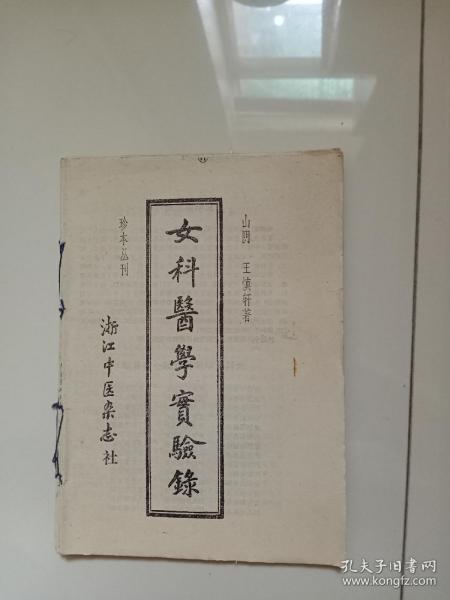 山阴 王慎轩著
女科醫學實驗錄
珍本丛刊
浙江中医杂志社
孔夫子旧书网
www.kongfz.com